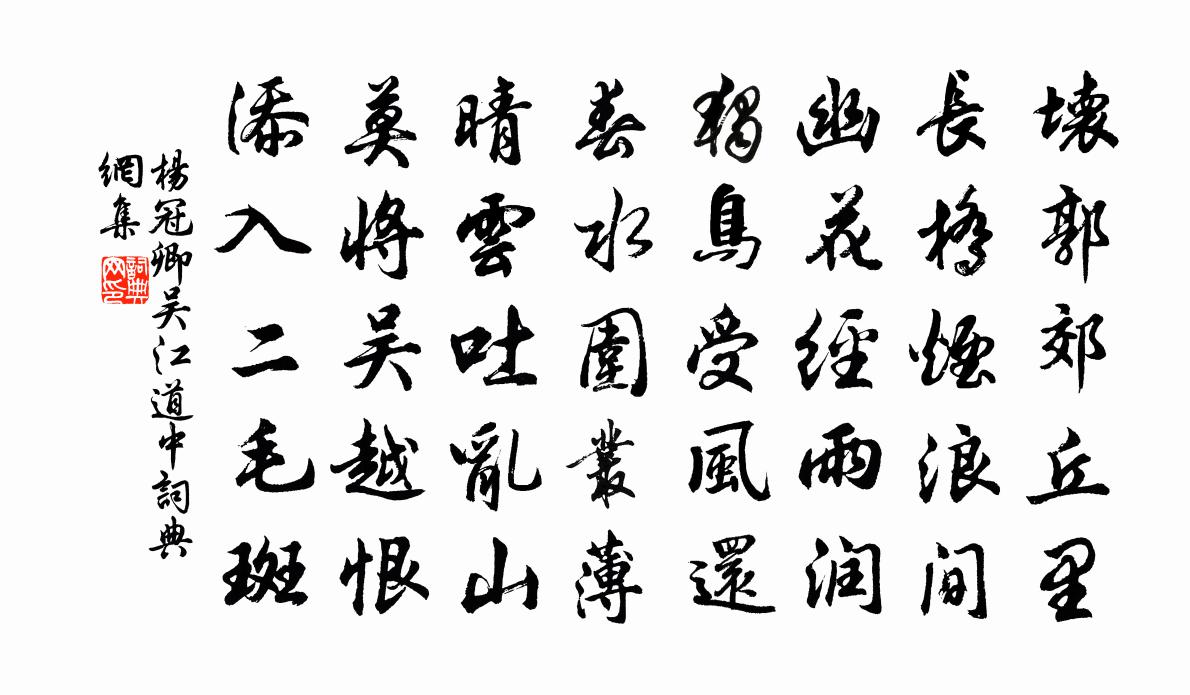 壞郭郊丘里
長橋煙浪間
幽花經雨润
獨鳥受風還
春水圍叢薄
晴雲吐亂山
莫將吴越恨
添入二毛斑
楊冠卿吴江道中詞典
網集
詞典網印